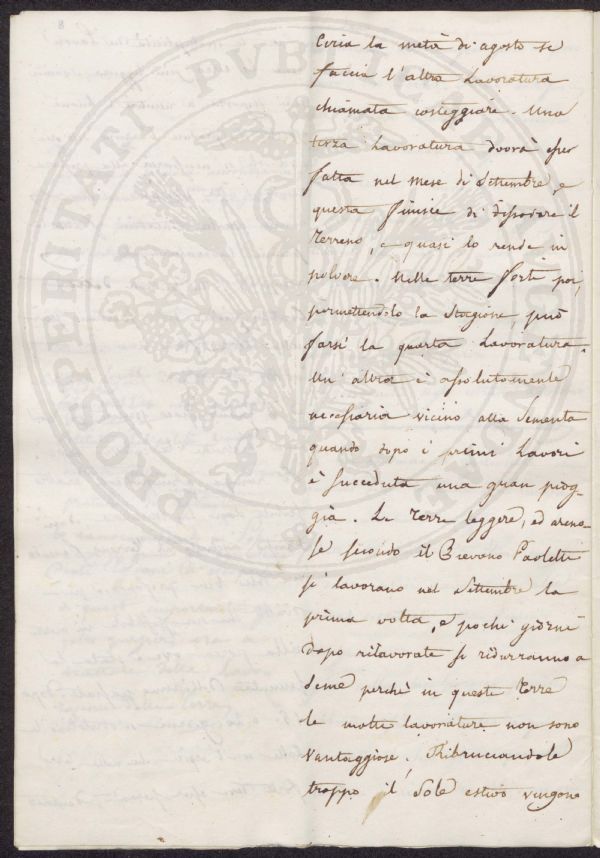 Circa la metà di agosto si
faccia l'altra Lavoratura
chiamata costeggiare. Una
terza Lavoratura dovrà esser
fatta nel mese di Settembre, e
questa finisce di dissodare il
Terreno, e quasi lo rende in
polvere. Nelle terre forti poi,
permettendolo la stagione, può
farsi la quarta Lavoratura.
Un' altra è assolutamente
necessaria vicino alla Sementa
quando dopo i primi Lavori
è succeduta una gran piog-
gia. Le Terre leggere, ed areno-
se secondo il Paoletti
si lavorano nel Settembre la
prima volta, e pochi giorni
dopo rilavorate si ridurranno a
seme perchè in queste Terre
le molte lavorature non sono
vantaggiose. Abbruciandole
troppo il Sole estivo vengono
PROSPERITATI PVBLICAE AVGENDAE
8